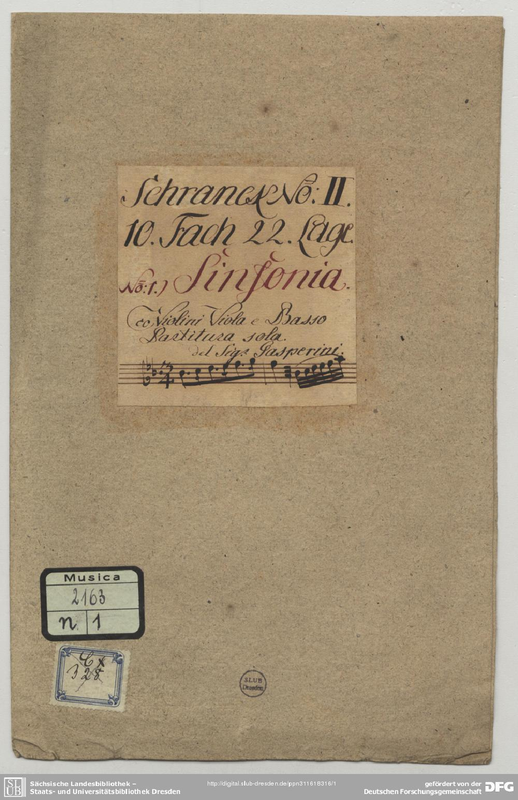 Schranck No: II.
10. Fach 22. Lage.
No: 1.) Sinfonia.
co Violini Viola e Basso
Partitura sola.
del Sigr Gasperini.
Musica
2163
n. 1
Cx
328
SLUB
Dresden
Sächsische Landesbibliothek –
Staats- und Universitätsbibliothek Dresden
http://digital.slub-dresden.de/ppn311818316/1
gefördert von der
Deutschen Forschungsgemeinschaft DFG